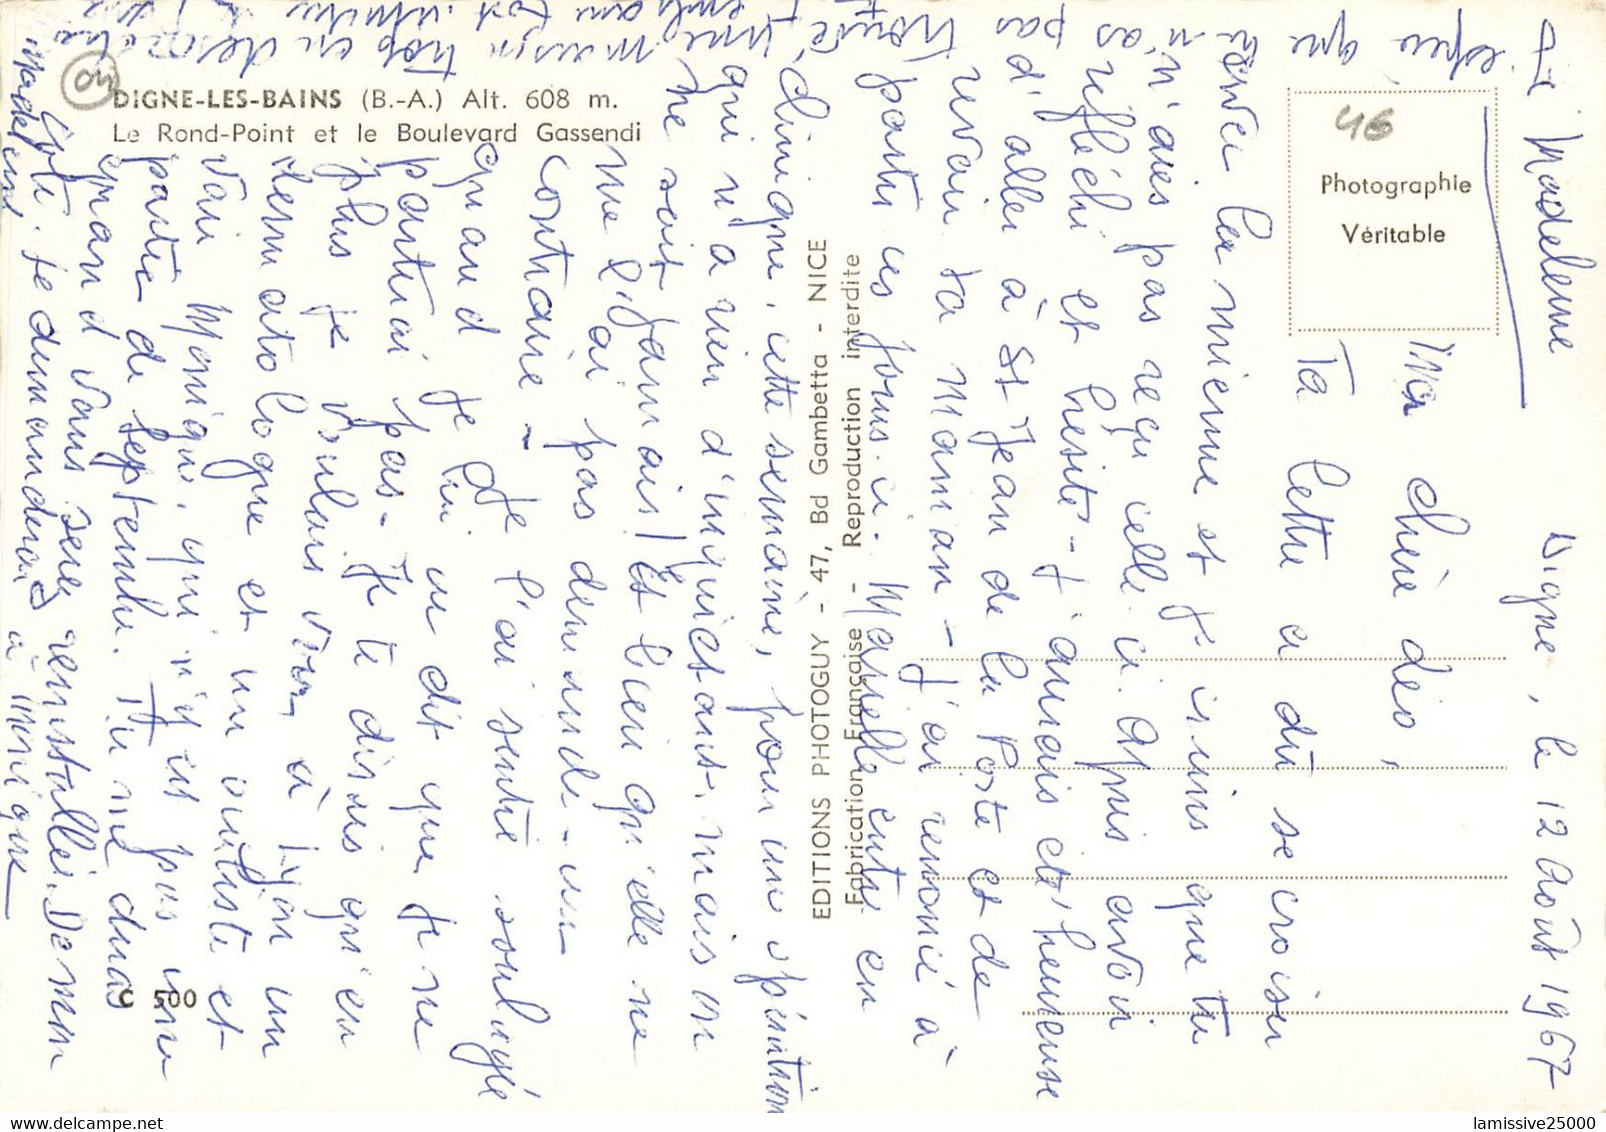 DIGNE-LES-BAINS (B.-A.) Alt. 608 m.
Le Rond-Point et le Boulevard Gassendi
46
Photographie
Véritable
EDITIONS PHOTOGUY - 47, Bd Gambetta - NICE
Fabrication Française - Reproduction interdite
C 500
Digne, le 12 Août 1967
Ma chère
Ta lettre a dû se croiser
avec la mienne et je crains que tu
n'aies pas reçu celle-ci. Après avoir
réfléchi et hésité - j'aurais été heureuse
d'aller à St Jean de la Poste et de
revoir ta maman - j'ai renoncé à
partir ces jours-ci. Marcelle entre en
clinique, cette semaine, pour une opération
qui n'a rien d'inquiétant, mais on
ne sait jamais! Et bien qu'elle ne
me l'ai pas demandé - au
contraire - Je l'ai sentie soulagée
quand je lui ai dit que je ne
partirai pas - Je te dirais qu'en
plus je voulais voir à Lyon un
dermatologue et un oculiste et
voir Monique, qui n'y est pas une
partie de septembre. Tu me diras
quand vous serez réinstallés. De mon
côté, je demanderai à Monique
J'espère que
tu n'as pas trouvé
une maison trop en désordre
Madeleine
lamissive25000